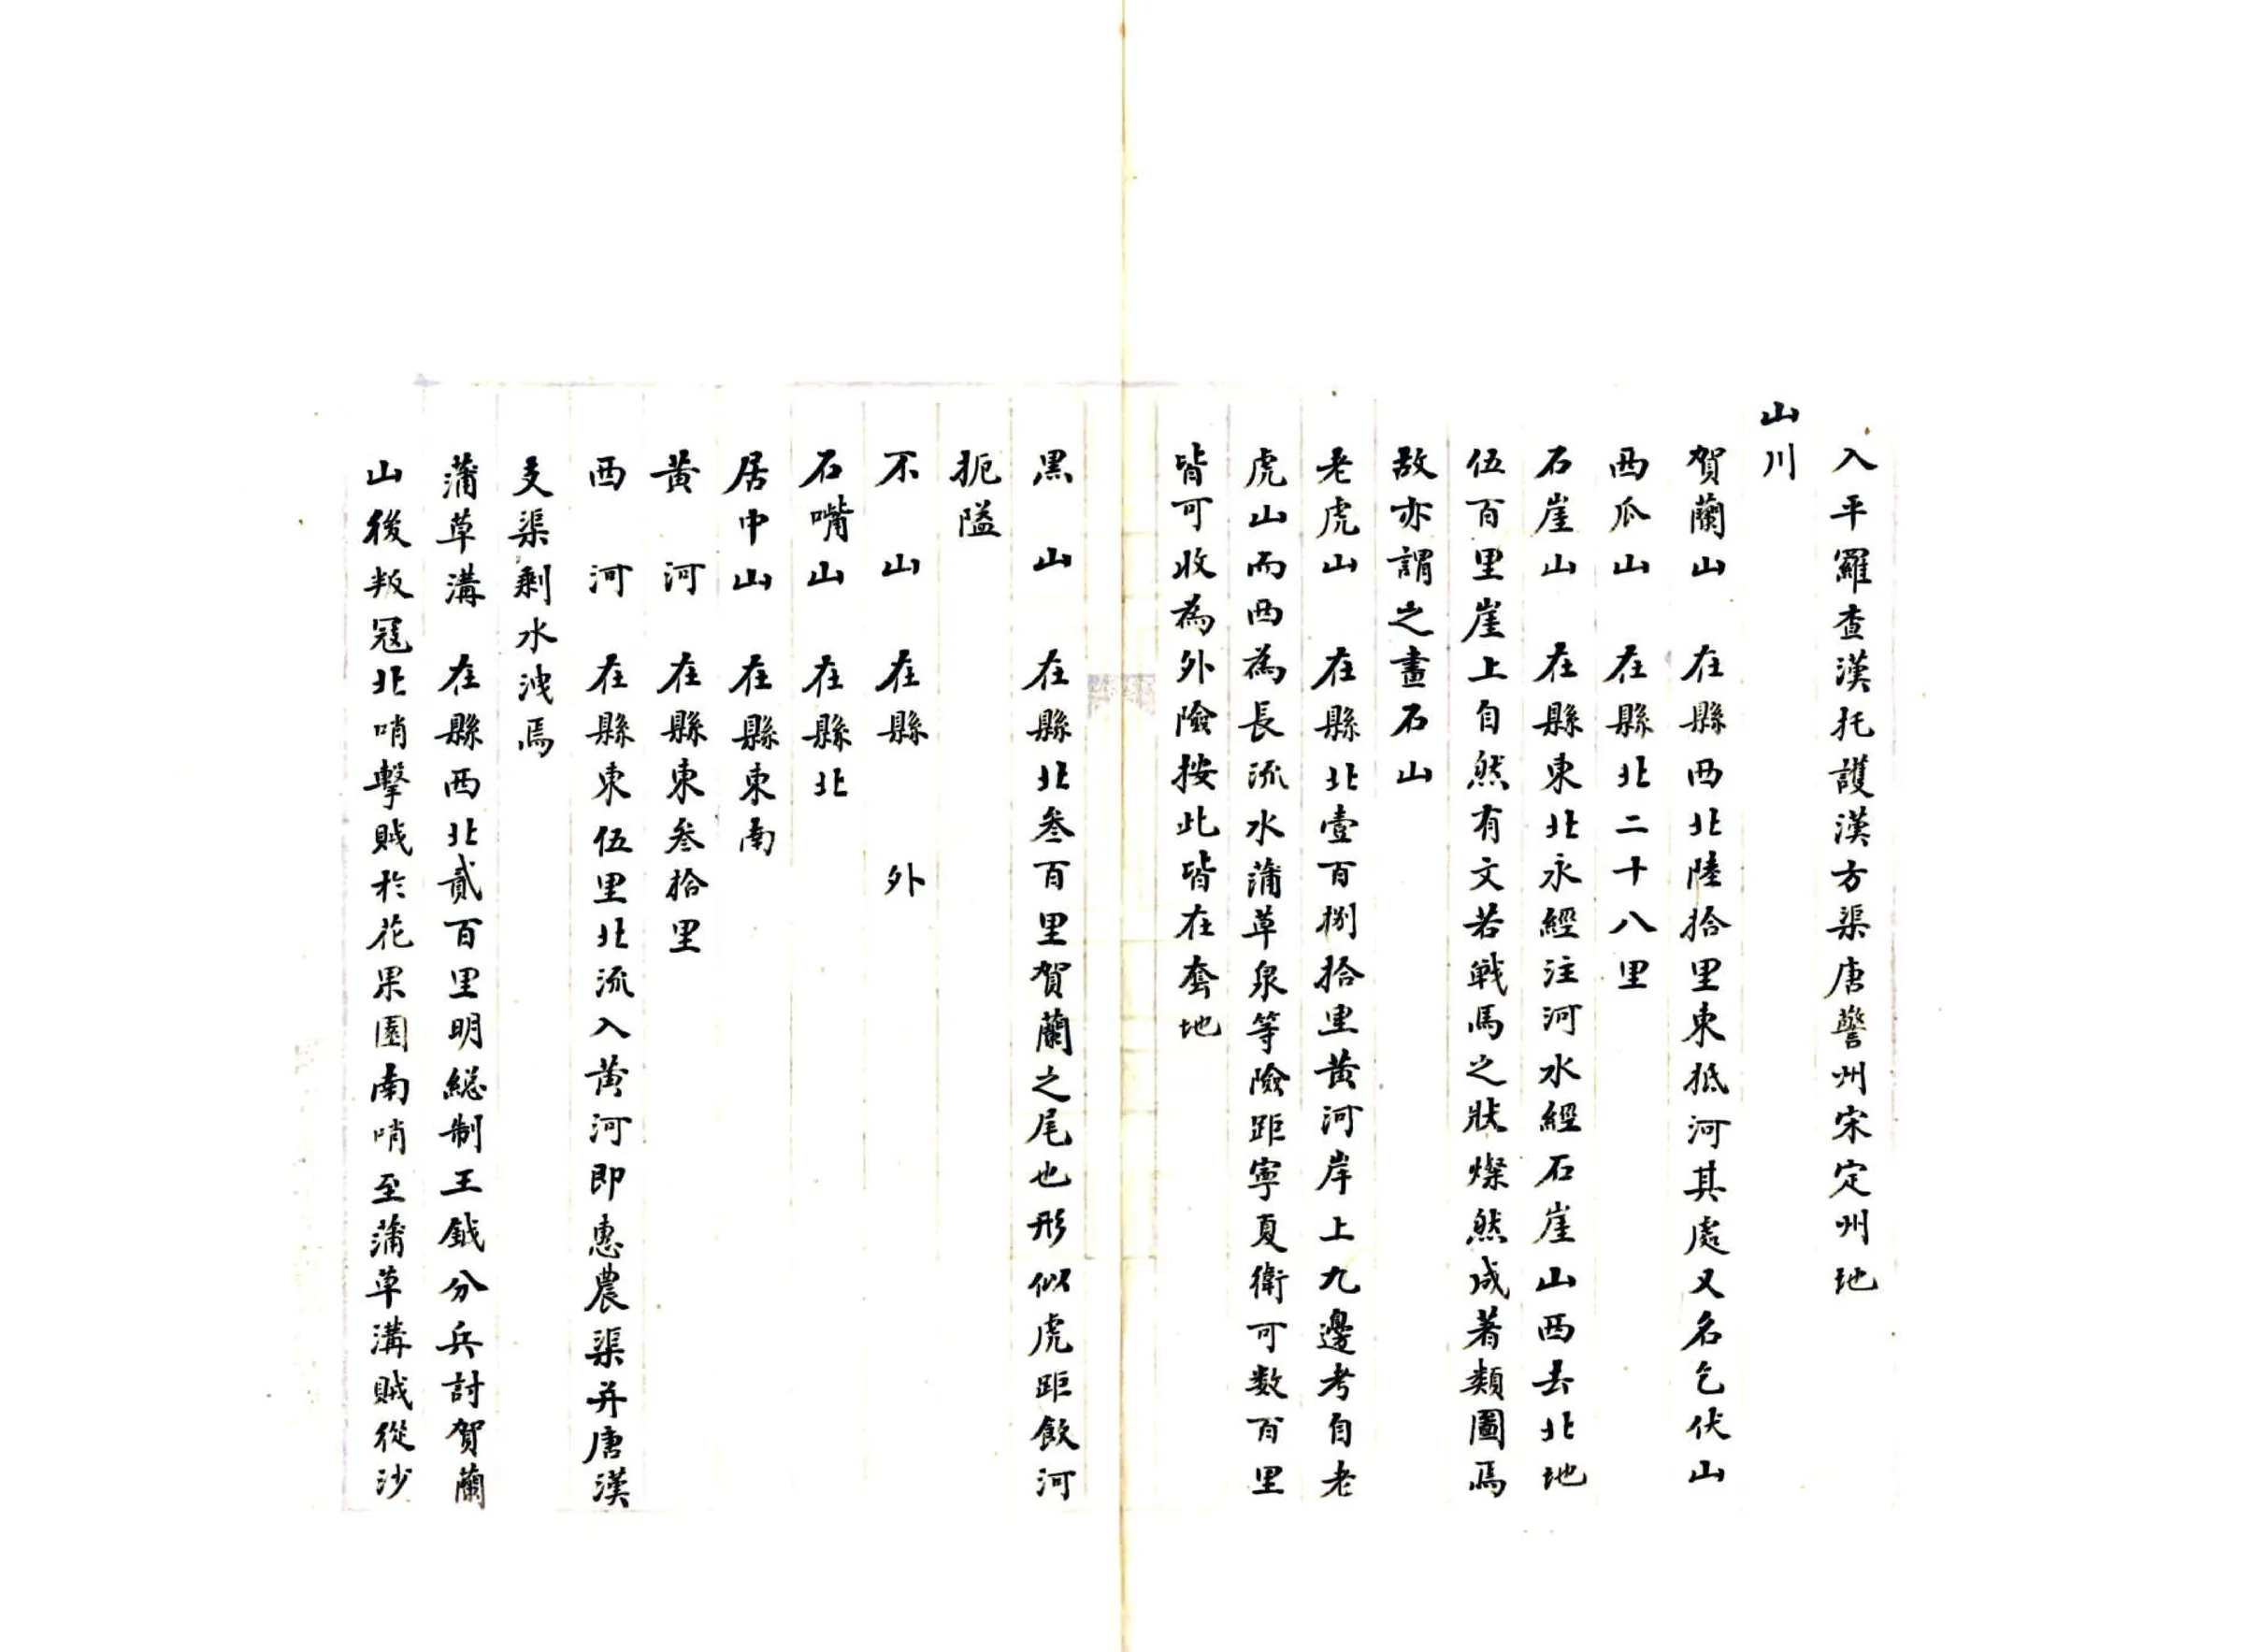 入平羅查漢托護漢方渠唐警州宋定州地
山川
賀蘭山　在縣西北陸拾里東抵河其處又名乞伏山
西瓜山　在縣北二十八里
石崖山　在縣東北永經注河水經石崖山西去北地
伍百里崖上自然有文若戦馬之狀燦然成著類圖焉
故亦謂之畫石山
老虎山　在縣北壹百捌拾里黃河岸上九邊考自老
虎山而西為長流水蒲草泉等險距寧夏衛可数百里
皆可收為外險按此皆在套地
黑山　在縣北叁百里賀蘭之尾也形似虎距飲河
扼隘
不山　在縣　外
石嘴山　在縣北
居中山　在縣東南
黃河　在縣東叁拾里
西河　在縣東伍里北流入黃河即惠農渠并唐漢
支渠剩水洩焉
蒲草溝　在縣西北貳百里明総制王鉞分兵討賀蘭
山後叛冦北哨擊賊於花果園南哨至蒲草溝賊從沙